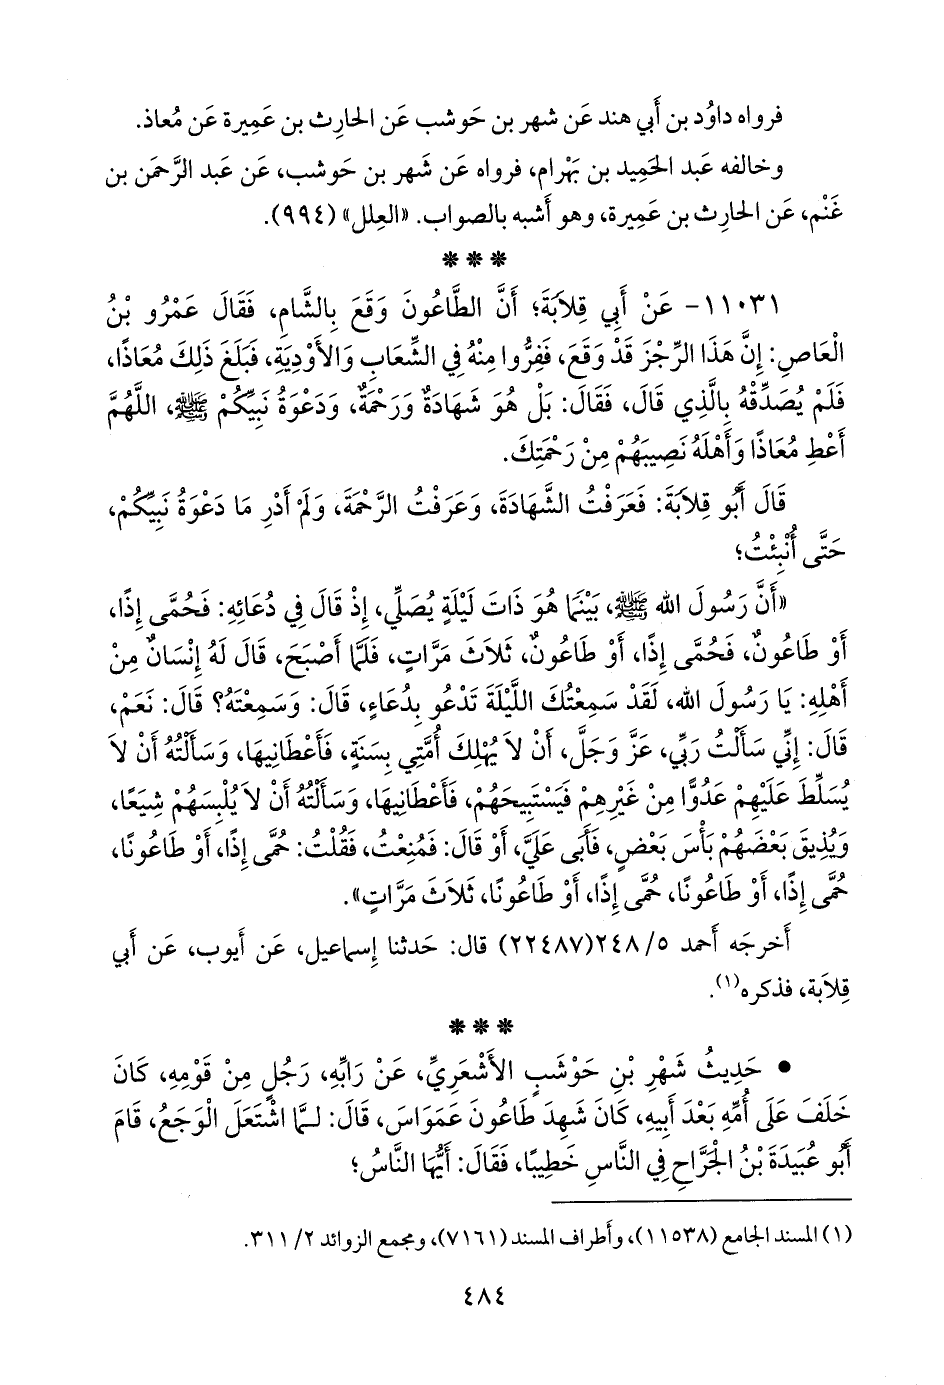 فرواه داوُد بن أَبي هند عَن شهر بن حَوشب عَن الحارِث بن عَمِيرة عَن مُعاذ.
وخالفه عَبد الحَمِيد بن بَهْرام، فرواه عَن شَهر بن حَوشب، عَن عَبد الرَّحمَن بن
غَنْم، عَن الحارِث بن عَمِيرة، وهو أَشبه بالصواب. «العِلل» (٩٩٤).
***
١١٠٣١- عَنْ أَبِي قِلَابَةَ؛ أَنَّ الطَّاعُونَ وَقَعَ بِالشَّامِ، فَقَالَ عَمْرُو بْنُ
الْعَاصِ: إِنَّ هَذَا الرِّجْزَ قَدْ وَقَعَ، فَفِرُّوا مِنْهُ فِي الشِّعَابِ وَالأَوْدِيَةِ، فَبَلَغَ ذَلِكَ مُعَاذًا،
فَلَمْ يُصَدِّقْهُ بِالَّذِي قَالَ، فَقَالَ: بَلْ هُوَ شَهَادَةٌ وَرَحْمَةٌ، وَدَعْوَةُ نَبِيِّكُمْ ﷺ، اللَّهُمَّ
أَعْطِ مُعَاذًا وَأَهْلَهُ نَصِيبَهُمْ مِنْ رَحْمَتِكَ.
قَالَ أَبُو قِلَابَةَ: فَعَرَفْتُ الشَّهَادَةَ، وَعَرَفْتُ الرَّحْمَةَ، وَلَمْ أَدْرِ مَا دَعْوَةُ نَبِيِّكُمْ،
حَتَّى أُنْبِئْتُ؛
«أَنَّ رَسُولَ الله ﷺ، بَيْنَمَا هُوَ ذَاتَ لَيْلَةٍ يُصَلِّي، إِذْ قَالَ فِي دُعَائِهِ: فَحُمَّى إِذًا،
أَوْ طَاعُونٌ، فَحُمَّى إِذًا، أَوْ طَاعُونٌ، ثَلَاثَ مَرَّاتٍ، فَلَمَّا أَصْبَحَ، قَالَ لَهُ إِنْسَانٌ مِنْ
أَهْلِهِ: يَا رَسُولَ الله، لَقَدْ سَمِعْتُكَ اللَّيْلَةَ تَدْعُو بِدُعَاءٍ، قَالَ: وَسَمِعْتَهُ؟ قَالَ: نَعَمْ،
قَالَ: إِنِّي سَأَلْتُ رَبِّي، عَزَّ وَجَلَّ، أَنْ لاَ يُهْلِكَ أُمَّتِي بِسَنَةٍ، فَأَعْطَانِيهَا، وَسَأَلْتُهُ أَنْ لاَ
يُسَلِّطَ عَلَيْهِمْ عَدُوًّا مِنْ غَيْرِهِمْ فَيَسْتَبِيحَهُمْ، فَأَعْطَانِيهَا، وَسَأَلْتُهُ أَنْ لاَ يُلْبِسَهُمْ شِيَعًا،
وَيُذِيقَ بَعْضَهُمْ بَأْسَ بَعْضٍ، فَأَبَى عَلَيَّ، أَوْ قَالَ: فَمُنِعْتُ، فَقُلْتُ: حُمَّى إِذًا، أَوْ طَاعُونًا،
حُمَّى إِذًا، أَوْ طَاعُونًا، حُمَّى إِذًا، أَوْ طَاعُونًا، ثَلاَثَ مَرَّاتٍ».
أَخرجَه أَحمد ٥/ ٢٤٨(٢٢٤٨٧) قال: حَدثنا إِسماعيل، عَن أَيوب، عَن أَبي
قِلاَبة، فذكره(١).
***
• حَدِيثُ شَهْرِ بْنِ حَوْشَبٍ الأَشْعَرِيِّ، عَنْ رَابِّهِ، رَجُلٍ مِنْ قَوْمِهِ، كَانَ
خَلَفَ عَلَى أُمِّهِ بَعْدَ أَبِيهِ، كَانَ شَهِدَ طَاعُونَ عَمَوَاسَ، قَالَ: لـمَّا اشْتَعَلَ الْوَجَعُ، قَامَ
أَبُو عُبَيْدَةَ بْنُ الْجَرَّاحِ فِي النَّاسِ خَطِيبًا، فَقَالَ: أَيُّهَا النَّاسُ؛
(١) المسند الجامع (١١٥٣٨)، وأطراف المسند (٧١٦١)، ومجمع الزوائد ٢/ ٣١١.
٤٨٤